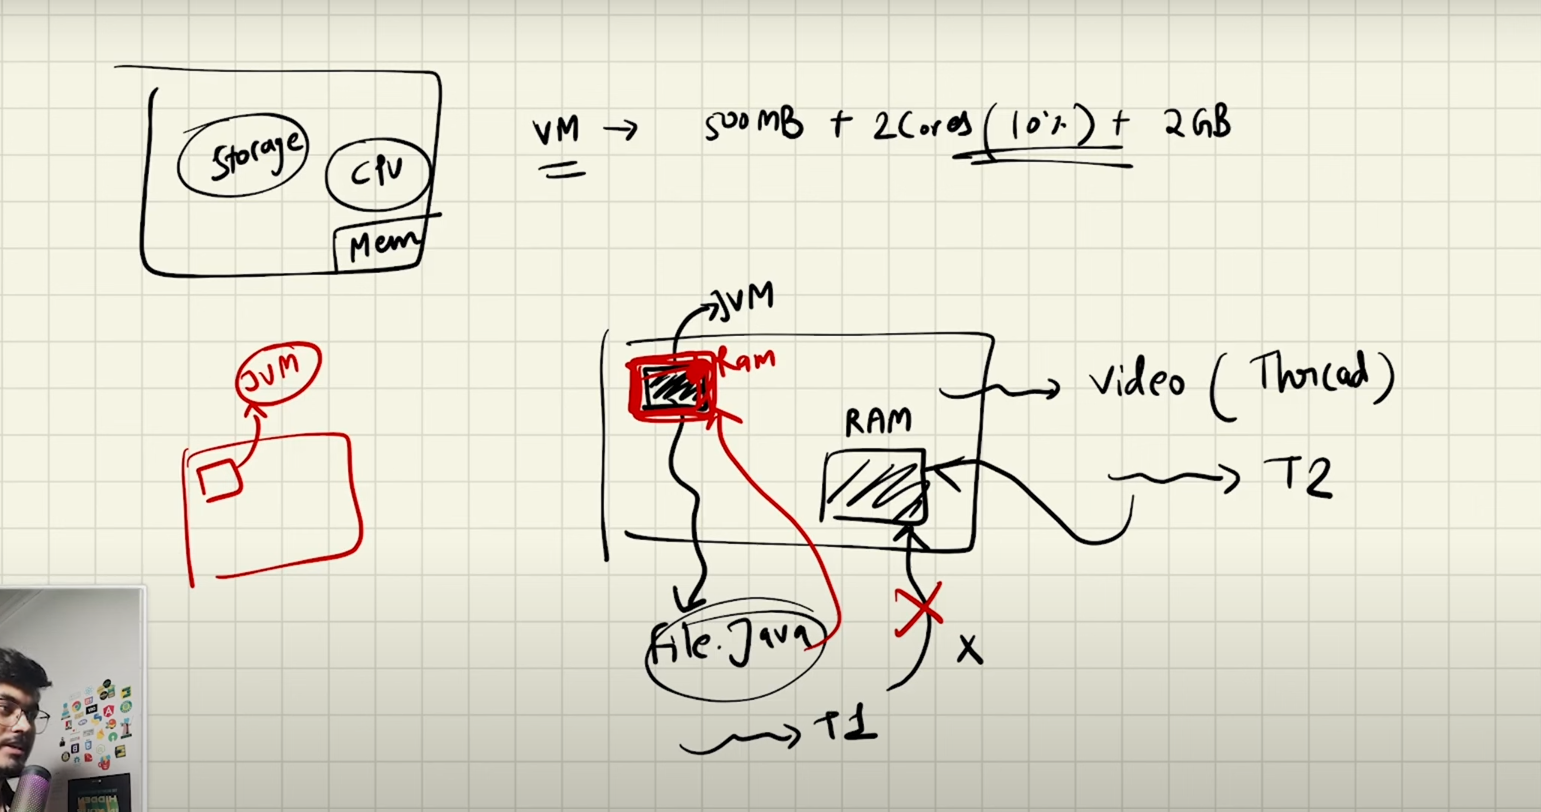 Storage
CPU
Mem
VM → 500MB + 2Cores (10%) + 2GB
JVM
JVM
Ram
RAM
Video (Thread)
T2
File.Java
X
T1